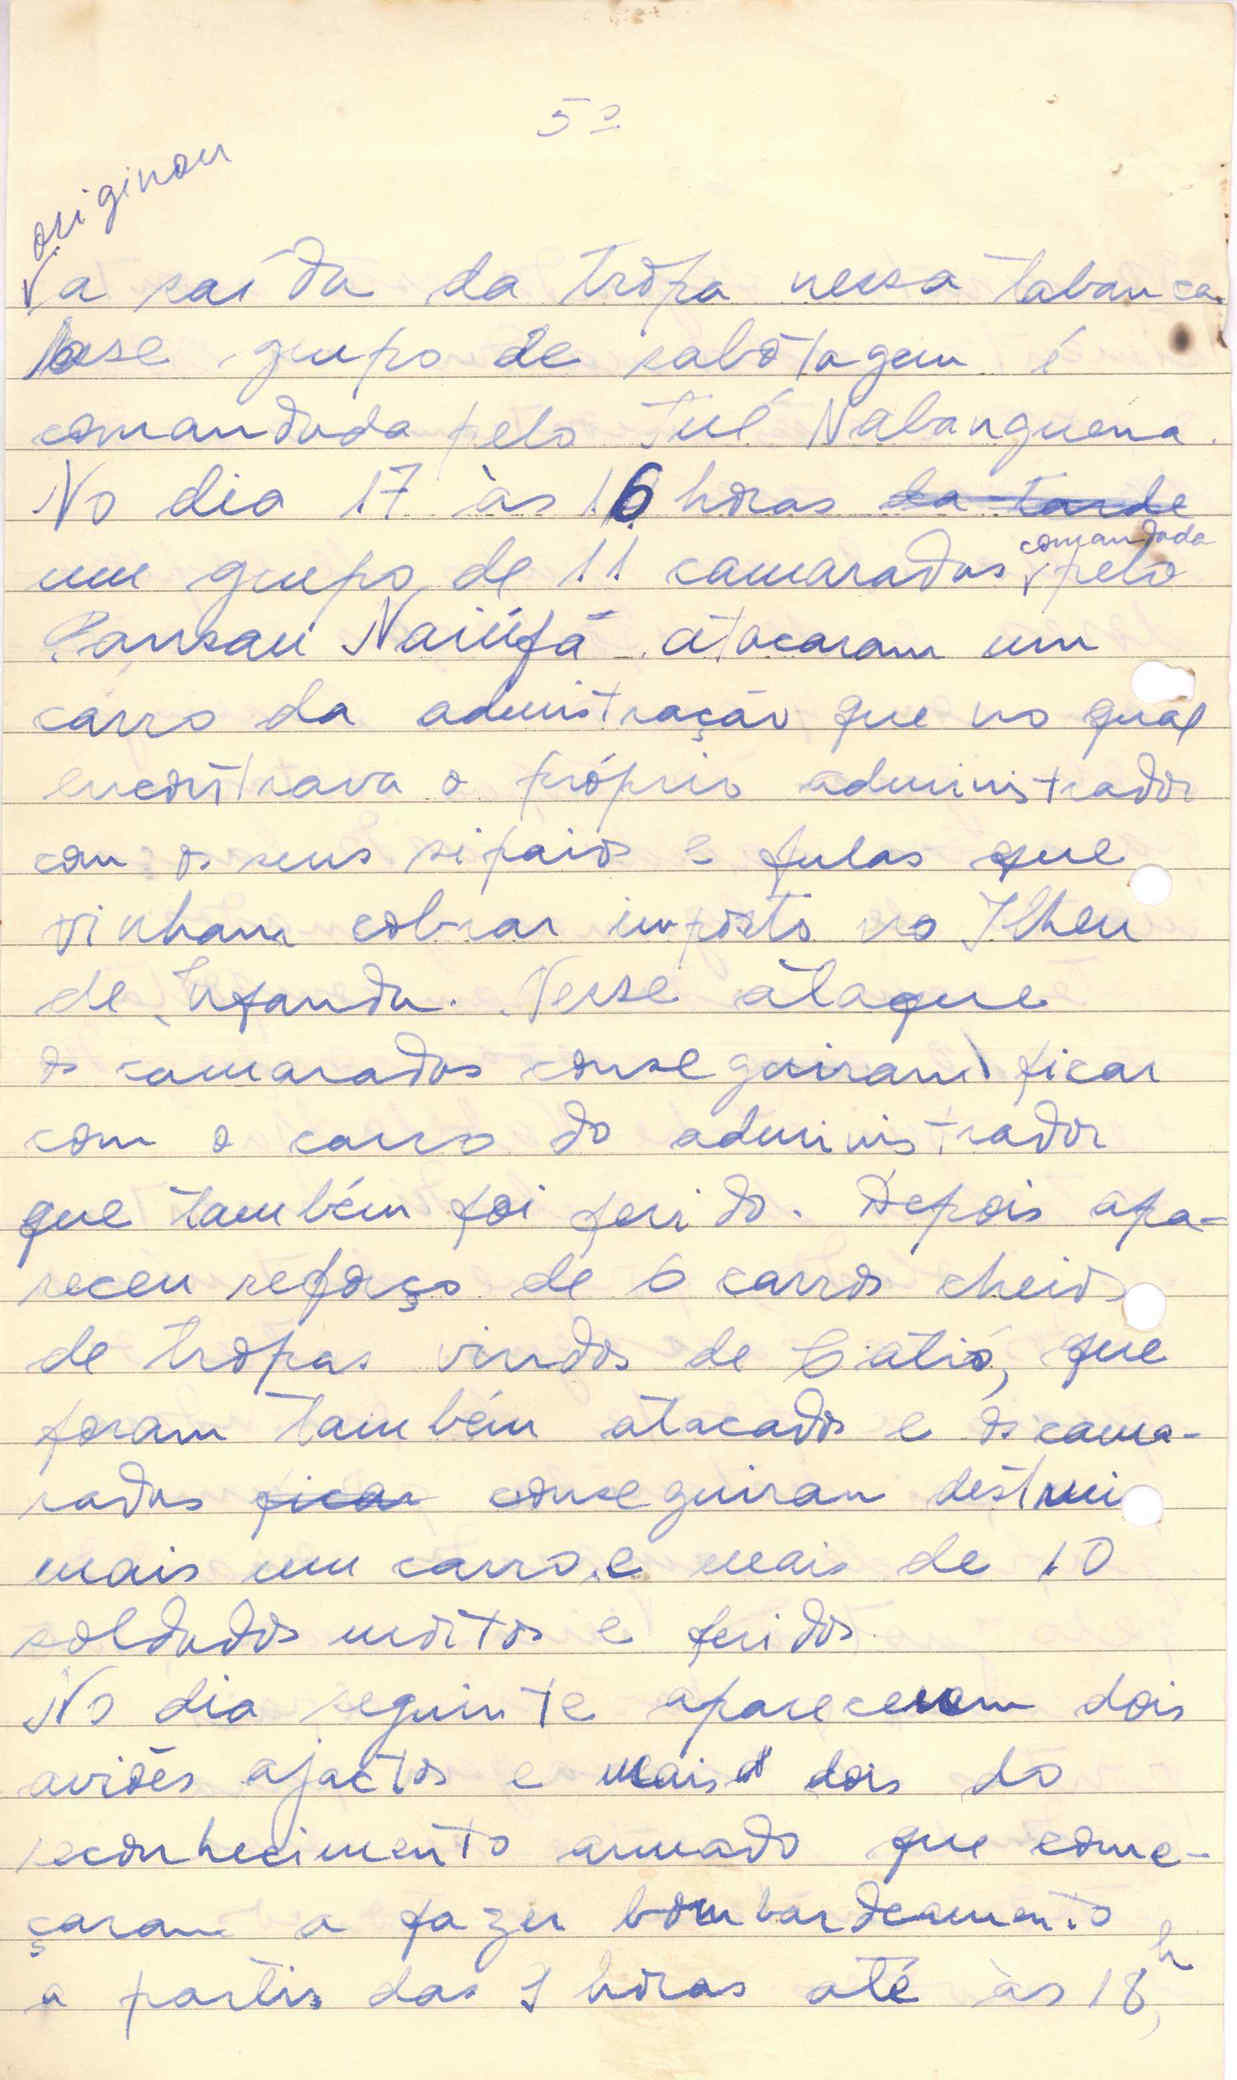 5º
originou
a saída da tropa nessa tabanca
esse grupo de sabotagem é
comandada pelo Tué Nabanguena.
No dia 17 às 16 horas da tarde
comandada
um grupo de 11 camaradas pelo
Pansau Naiúfá atacaram um
carro da admistração que no qual
encontrava o próprio administrador
com os seus sipaios e fulas que
vinham cobrar imposto no Ilheu
de Infanda. Nesse ataque
os camaradas conseguiram ficar
com o carro do administrador
que também foi ferido. Depois apa-
receu reforço de 6 carros cheios
de tropas vindos de Catió, que
foram também atacados e os cama-
radas ficar conseguiram destrui
mais um carro, e mais de 10
soldados mortos e feridos.
No dia seguinte apareceram dois
aviões ajactos e mais dois do
reconhecimento armado que come-
çaram a fazer bombardeamento
a partir das 9 horas até às 18h,